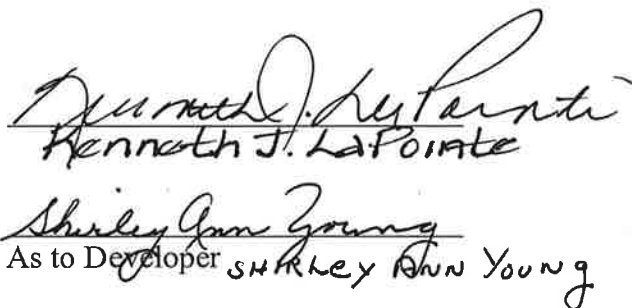 Kenneth J. LaPointe
Kenneth J. LaPointe
Shirley Ann Young
As to Developer SHIRLEY ANN YOUNG